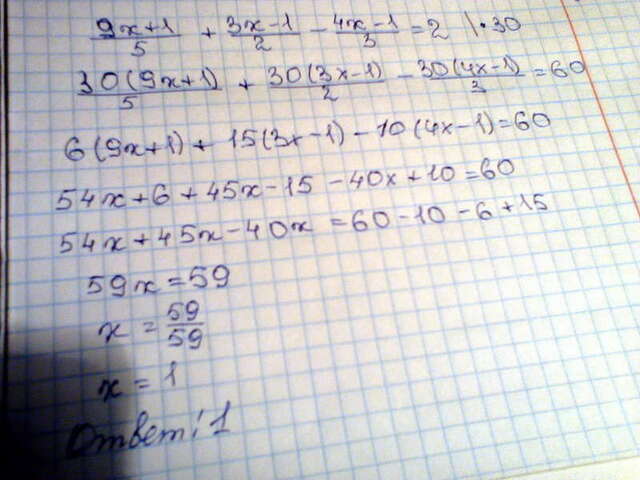 (9x+1)/5 + (3x-1)/2 - (4x-1)/3 = 2 |·30
30(9x+1)/5 + 30(3x-1)/2 - 30(4x-1)/3 = 60
6(9x+1) + 15(3x-1) - 10(4x-1) = 60
54x+6+45x-15-40x+10=60
54x+45x-40x=60-10-6+15
59x=59
x = 59/59
x = 1
Ответ: 1